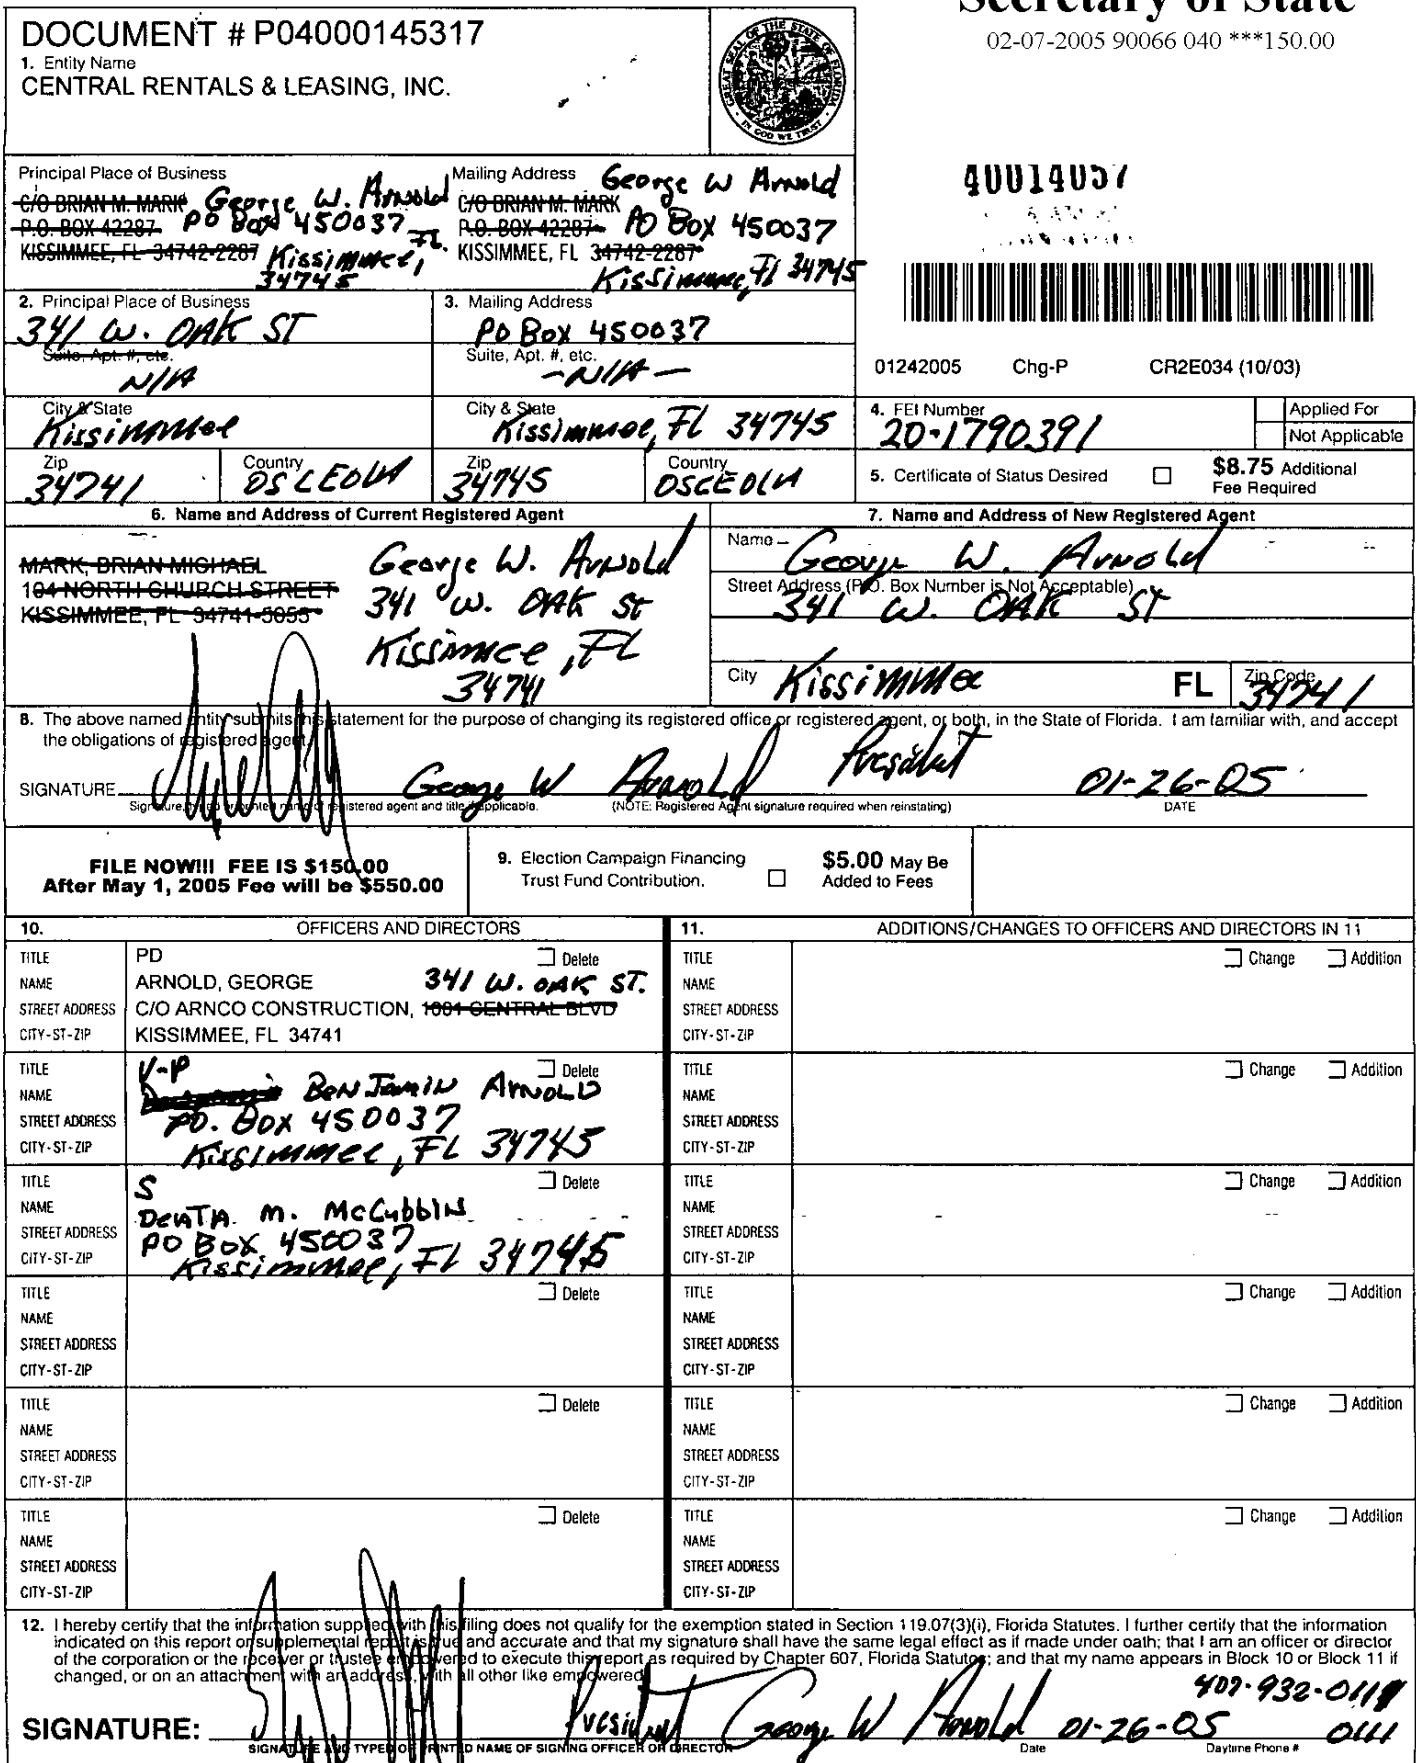 Secretary of State
02-07-2005 90066 040 ***150.00
DOCUMENT # P04000145317
1. Entity Name
CENTRAL RENTALS & LEASING, INC.
GREAT SEAL OF THE STATE OF FLORIDA
IN GOD WE TRUST
40014057
Principal Place of Business
C/O BRIAN M. MARK George W. Arnold
P.O. BOX 42287 PO Box 450037
KISSIMMEE, FL 34742-2287 Kissimmee, FL.
34745
Mailing Address George W Arnold
C/O BRIAN M. MARK
P.O. BOX 42287 PO Box 450037
KISSIMMEE, FL 34742-2287
Kissimmee, Fl 34745
2. Principal Place of Business
341 W. OAK ST
Suite, Apt. #, etc.
N/A
City & State
Kissimmee
Zip
34741
Country
OSCEOLA
3. Mailing Address
PO Box 450037
Suite, Apt. #, etc.
-N/A-
City & State
Kissimmee, FL 34745
Zip
34745
Country
OSCEOLA
01242005 Chg-P CR2E034 (10/03)
4. FEI Number
20-1790391
Applied For
Not Applicable
5. Certificate of Status Desired
$8.75 Additional
Fee Required
6. Name and Address of Current Registered Agent
MARK, BRIAN MICHAEL
104 NORTH CHURCH STREET
KISSIMMEE, FL 34741-5055
George W. Arnold
341 W. OAK St
Kissimmee, FL
34741
7. Name and Address of New Registered Agent
Name George W. Arnold
Street Address (P.O. Box Number is Not Acceptable)
341 W. OAK ST
City Kissimmee FL Zip Code 34741
8. The above named entity submits this statement for the purpose of changing its registered office or registered agent, or both, in the State of Florida. I am familiar with, and accept
the obligations of registered agent.
SIGNATURE George W Arnold President 01-26-05
Signature, typed or printed name of registered agent and title if applicable. (NOTE: Registered Agent signature required when reinstating) DATE
FILE NOW!!! FEE IS $150.00
After May 1, 2005 Fee will be $550.00
9. Election Campaign Financing
Trust Fund Contribution.
$5.00 May Be
Added to Fees
10. OFFICERS AND DIRECTORS
TITLE PD Delete
NAME ARNOLD, GEORGE 341 W. OAK ST.
STREET ADDRESS C/O ARNCO CONSTRUCTION, 1001 CENTRAL BLVD
CITY-ST-ZIP KISSIMMEE, FL 34741
TITLE V-P Delete
NAME BENJAMIN ARNOLD
STREET ADDRESS P.O. Box 450037
CITY-ST-ZIP Kissimmee, FL 34745
TITLE S Delete
NAME M. McCubbin
STREET ADDRESS PO Box 450037
CITY-ST-ZIP Kissimmee, Fl 34745
TITLE Delete
NAME
STREET ADDRESS
CITY-ST-ZIP
TITLE Delete
NAME
STREET ADDRESS
CITY-ST-ZIP
TITLE Delete
NAME
STREET ADDRESS
CITY-ST-ZIP
11. ADDITIONS/CHANGES TO OFFICERS AND DIRECTORS IN 11
TITLE Change Addition
NAME
STREET ADDRESS
CITY-ST-ZIP
TITLE Change Addition
NAME
STREET ADDRESS
CITY-ST-ZIP
TITLE Change Addition
NAME
STREET ADDRESS
CITY-ST-ZIP
TITLE Change Addition
NAME
STREET ADDRESS
CITY-ST-ZIP
TITLE Change Addition
NAME
STREET ADDRESS
CITY-ST-ZIP
TITLE Change Addition
NAME
STREET ADDRESS
CITY-ST-ZIP
12. I hereby certify that the information supplied with this filing does not qualify for the exemption stated in Section 119.07(3)(i), Florida Statutes. I further certify that the information
indicated on this report or supplemental report is true and accurate and that my signature shall have the same legal effect as if made under oath; that I am an officer or director
of the corporation or the receiver or trustee empowered to execute this report as required by Chapter 607, Florida Statutes; and that my name appears in Block 10 or Block 11 if
changed, or on an attachment with an address, with all other like empowered.
407-932-0111
SIGNATURE: President George W Arnold 01-26-05 0111
SIGNATURE AND TYPED OR PRINTED NAME OF SIGNING OFFICER OR DIRECTOR Date Daytime Phone #